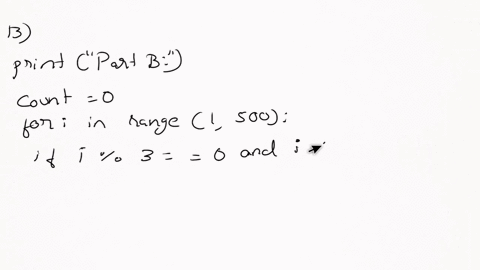 B)
print ("Part B:")
count = 0
for i in range (1, 500):
if i % 3 = = 0 and i